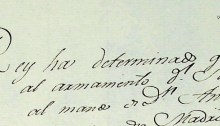 Rey ha determinado q
al armamento
al mano D.n An
Madrid